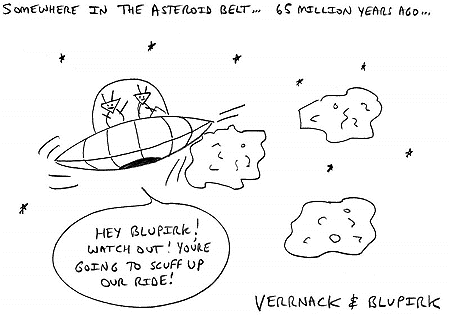 SOMEWHERE IN THE ASTEROID BELT... 65 MILLION YEARS AGO...
HEY BLUPIRK!
WATCH OUT! YOU'RE
GOING TO SCUFF UP
OUR RIDE!
VERRNACK & BLUPIRK